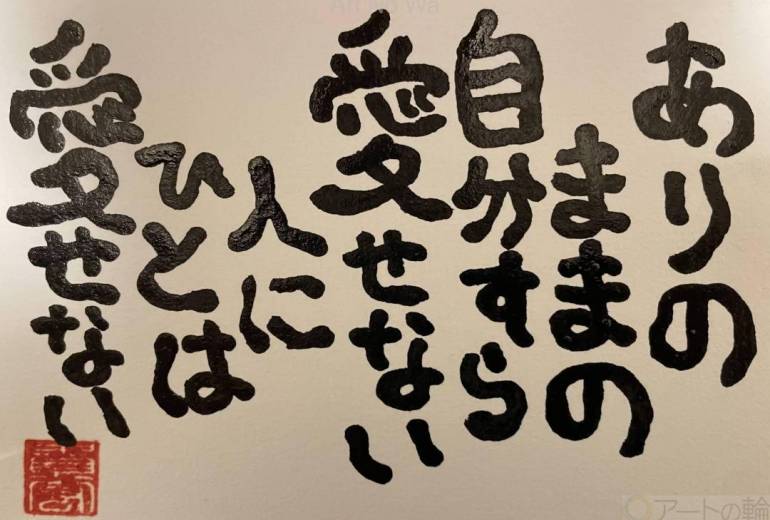 ありの
ままの
自分すら
愛せない
人に
ひとは
愛せない
Art No Wa
アートの輪